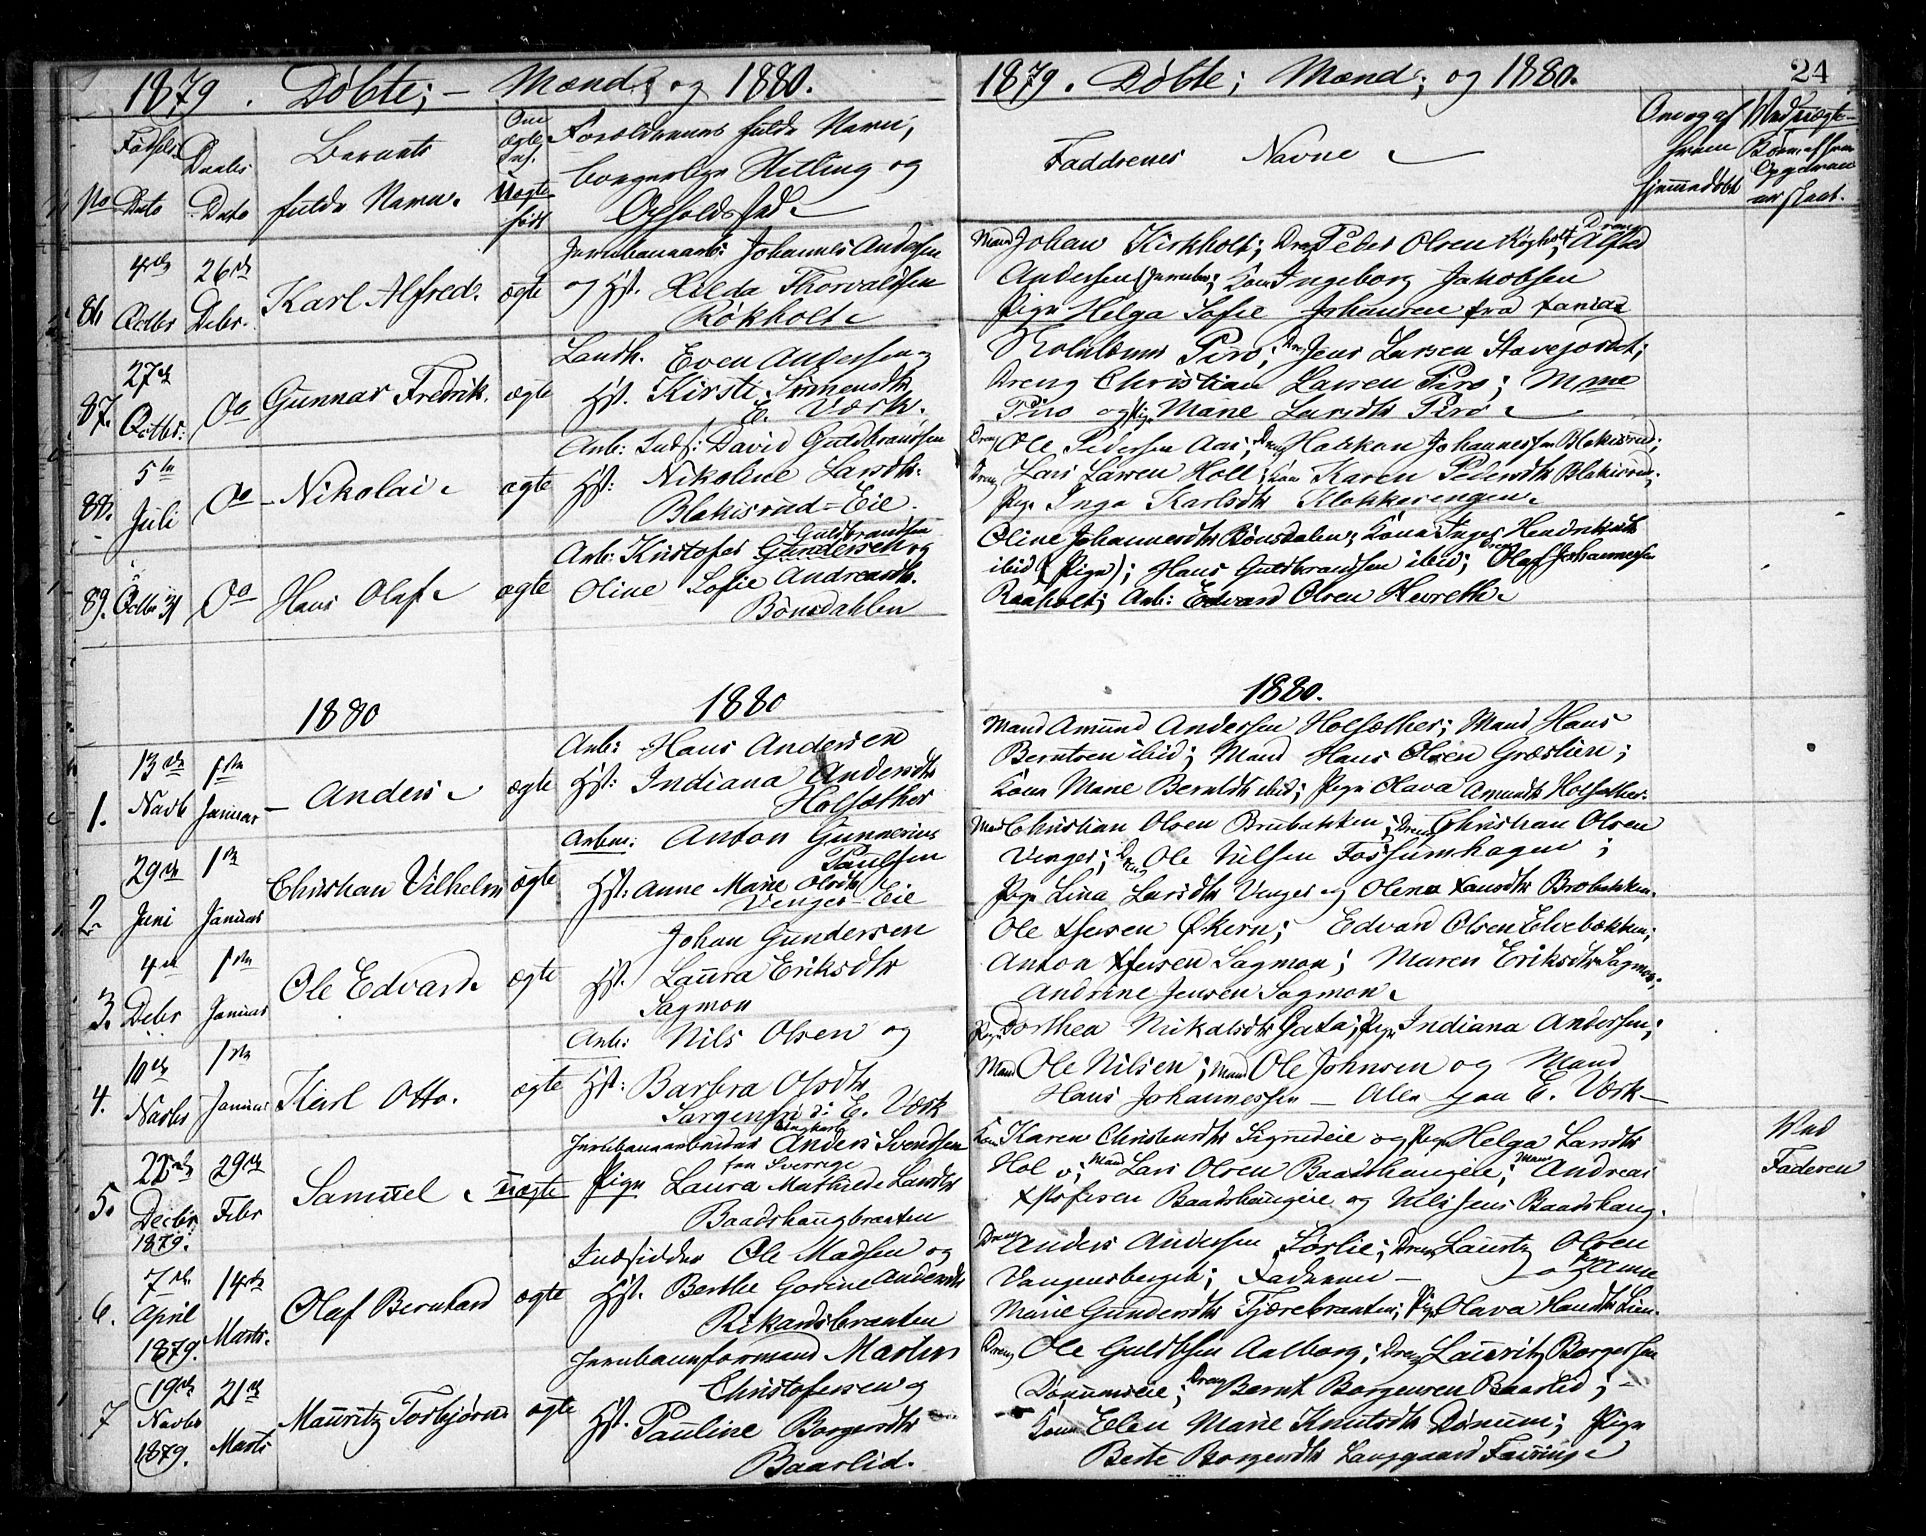 1879. Døbte; – Mænd; og 1880.
Fødsels Dato
Daabs Dato
Barnets fulde Navn.
Om ægte
Uægte født
Forældrenes fulde Navn,
borgerlige Stilling og
Opholdssted
86
4de Octbr
26de Debr.
Karl Alfred.
ægte
Johannes Andersen
og Hst. Hilda Thorvaldsen
Rökholt
87.
27de Octbr.
Do
Gunnar Fredrik.
ægte
Landh. Even Andersen og
Hst. Kirsti Simensdtr
E. Værk.
88.
5te Juli
Do
Nikolai
ægte
Arb: Inds: David Guldbrandsen
Hst: Nikoline Larsdtr.
Blakisrud-Eie.
89.
Octbr 31
Do
Hans Olaf
ægte
Guldbrandsen
Arb: Kristofer Gundersen og
Oline Sofie Andreasdtr.
Bönsdahlen
1880
1880
1.
13de Novb
1ste Januar
Anders
ægte
Arb: Hans Andersen
Hst: Indiana Andersdtr
Holsæther
2.
29de Juni
1ste Januar
Christian Vilhelm
ægte
Arbm: Anton Gunnerius
Paulsen
Hst: Anne Marie Olsdtr
Venger Eie
3.
4de Debr
1ste Januar
Ole Edvard
ægte
Johan Gundersen
Hst. Laura Eriksdtr
Sagmon
4.
10de Novbr
1ste Januar
Karl Otto.
ægte
Arb: Nils Olsen og
Hst: Barbra Olsdtr
Sorgenfri i E. Værk
5.
22de Decbr 1879.
29de Febr
Samuel
uægte
Jernbanearbeider Anders Svendsen
fra Sverrige
Pige Laura Mathilde Larsdtr
Baadshaugbraaten
6.
7de April 1879.
14de Marts.
Olaf Bernhard
ægte
Indsidder Ole Madsen og
Hst. Berthe Gorine Andersdtr
Rikardsbraaten
7
19de Novbr 1879.
21de Marts
Mauritz Torbjørn
ægte
Jernbaneformand Martin
Christofersen og
Hst. Pauline Borgersdtr
Baarlid.
1879. Døbte; Mænd; og 1880.
24
Faddrenes Navne
Om og af hvem hjemmedøbt
Ved uægte Børn, af hvem Opgaven er skeet.
Mand Johan Kirkholt; Dreng Peter Olsen Rögholt; Dreng Alfred
Andersen; Kone Ingeborg Jakobsen
Pige Helga Sofie Johansen fra
Piro; Jens Larsen Stavejordet;
Dreng Christian Larsen Piro; Mme
Piro og Pige Marie Larsdtr Piro
Dreng Ole Pedersen Aas; Dreng Haakon Johannessen Blakisrud;
Dreng Lars Larsen Holl; Kone Karen Pedersdtr Blakisrud;
Pige Inga Karlsdtr Klokkerengen
Oline Johannesdtr Bönsdalen; Kone Inger Hendriksdtr
ibid (Pige); Hans Guldbrandsen ibid; Dreng Olaf Johannessen
Raaholt; Arb: Edvard Olsen Hvreth
1880.
Mand Amund Andersen Holsæther; Mand Hans
Berntsen ibid; Mand Hans Olsen Græslien;
Kone Marie Berntsdtr ibid; Pige Olava Amundsdtr Holsæther.
Mand Christian Olsen Brubakken; Dreng Christian Olsen
Venger; Dreng Ole Nilsen Fossumhagen;
Pige Lina Larsdtr Venger og Olena Hansdtr Brobakken.
Ole Xfersen Økern; Edvard Olsen Elvebakken;
Anton Xfersen Sagmon; Maren Eriksdtr Sagmon;
Andrine Jensen Sagmon
Pige Dorthea Nikolisdtr Gata; Pige Indiana Andersen;
Mand Ole Nilsen; Mand Ole Johnsen og Mand
Hans Johannessen – Alle paa E. Værk –
Kone Karen Christensdtr Signedeie og Pige Helga Larsdtr
Hol v; Mand Lars Olsen Baadshaugeie; Mand Andreas
Xstofersen Baadshaugeie og Nils Jens Baadshaug.
Ved
Faderen
Dreng Anders Andersen Sørlie; Dreng Lauritz Olsen
Vangensbergeie; Faderen – og Pige Anne
Marie Gundersdtr Tjærebraaten; Pige Olava Hansdtr Lien.
Dreng Ole Guldbsen Aalborg; Dreng Lauritz Borgersen
Dønnumseie; Dreng Bernt Borgersen Baarlid; –
Kone Elen Marie Knutsdtr Dønum; Pige
Berte Borgersdtr Langgaard Fairing